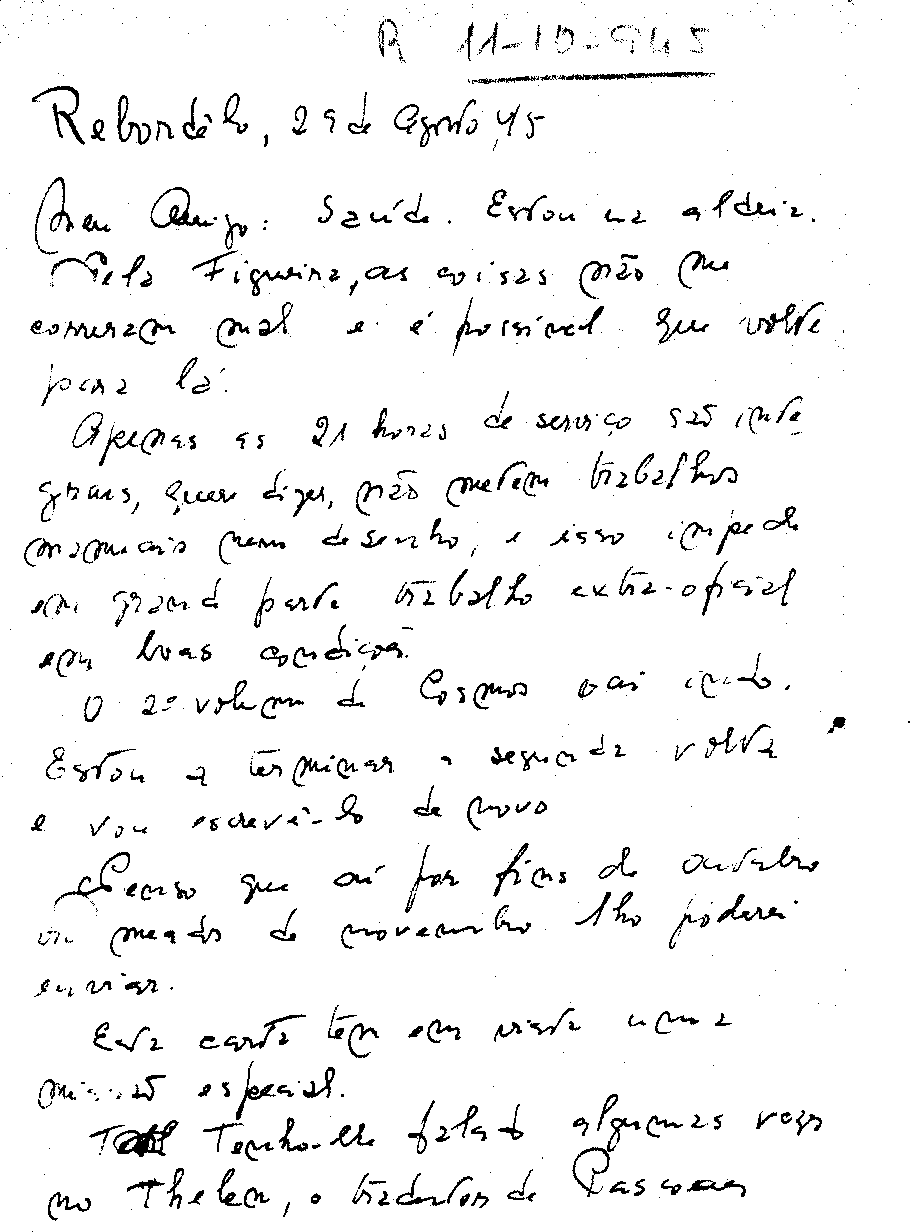 R 11-10-945
Rebordêlo, 29 de Agosto, 45
Meu Amigo: Saúde. Estou na aldeia.
Pela Figueira, as coisas não me
correram mal e é possivel que volte
para lá.
Apenas as 21 horas de serviço são inte
grais, quere dizer, não metem trabalhos
manuais nem desenho, e isso impede
em grande parte trabalho extra-oficial
em boas condições.
O 2º volume de Cosmos vai indo.
Estou a terminar a segunda volta
e vou escrevê-lo de novo
Penso que aí por fins de outubro
ou meados de novembro lho poderei
enviar.
Esta carta tem em vista uma
missão especial.
Tenho-lhe falado algumas vezes
no Thelen, o tradutor de Pascoaes